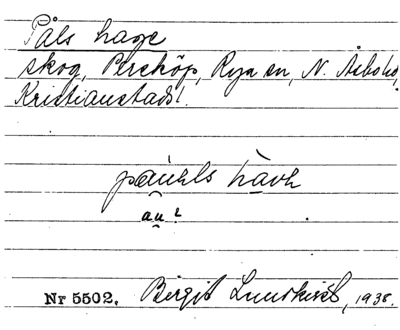 Påls hage
skog, Perstorp, Rya sn, N. Åsbo hd,
Kristianstads l.
hàvh
au?
Nr 5502. Birgit Lundkvist, 1938.